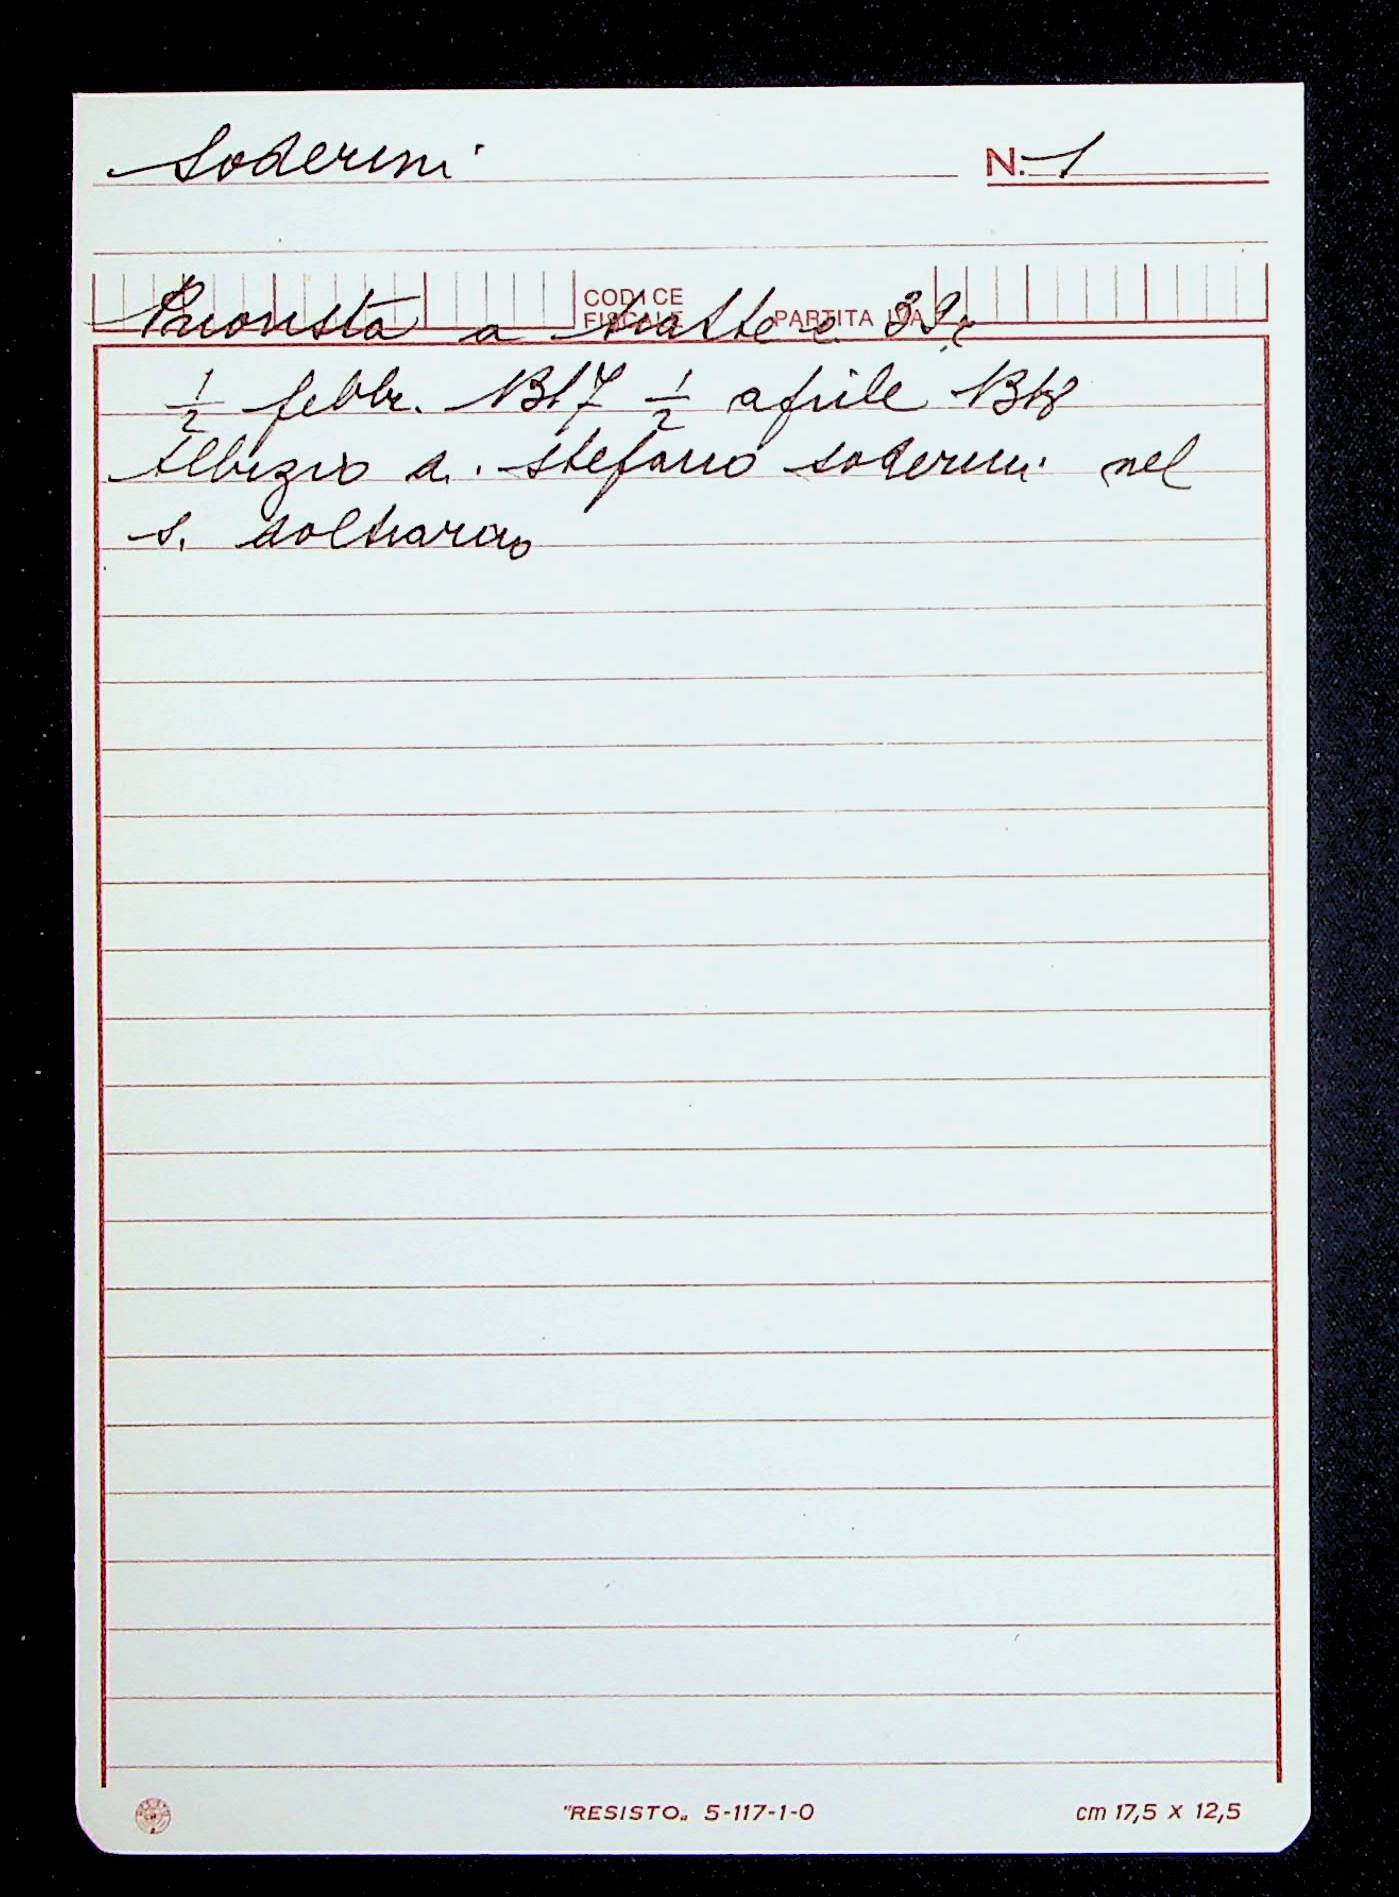 Soderini N. 1
CODICE
FISCALE PARTITA IVA
Priorista a tratte c. 33r
1/2 febbr. 1317 1/2 aprile 1318
Albizio d. Stefano Soderini nel
s. Oltrarno
"RESISTO„ 5-117-1-0 cm 17,5 x 12,5